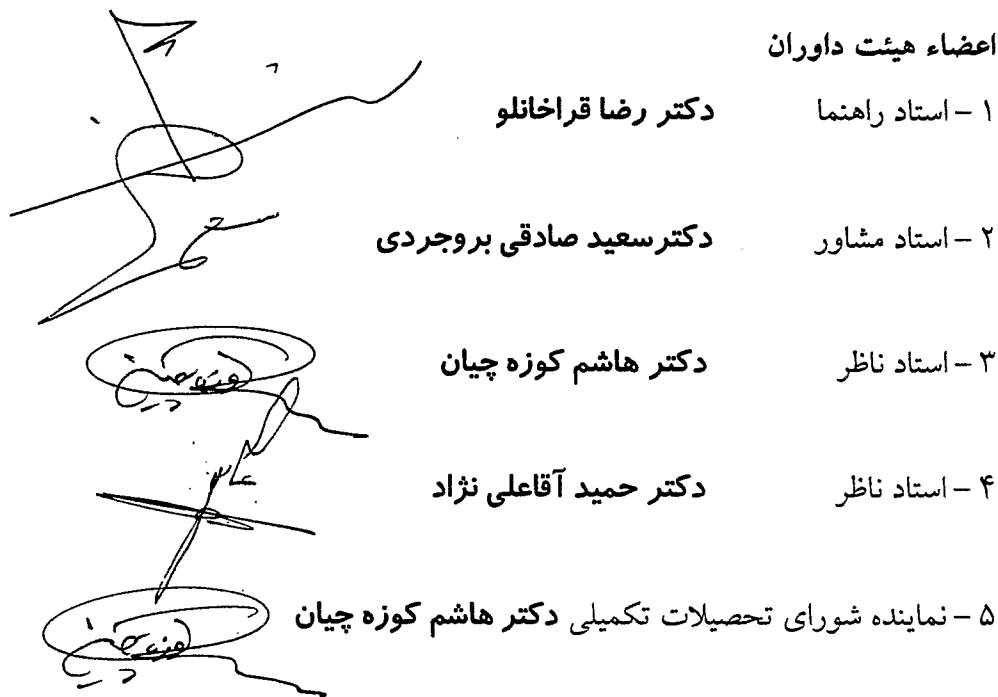 اعضاء هیئت داوران
۱ – استاد راهنما دکتر رضا قراخانلو
۲ – استاد مشاور دکترسعید صادقی بروجردی
۳ – استاد ناظر دکتر هاشم کوزه چیان
۴ – استاد ناظر دکتر حمید آقاعلی نژاد
۵ – نماینده شورای تحصیلات تکمیلی دکتر هاشم کوزه چیان